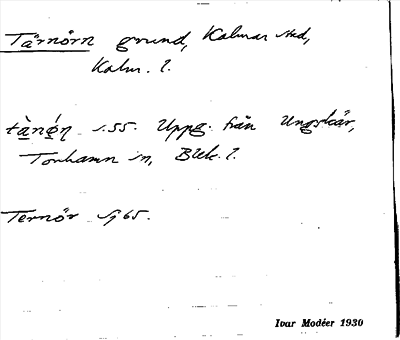 Tärnörn grund, Kalmar sted,
Kalm. l.
tànǿn s. 55. Uppg. från Ungskär,
Torhamn sn, Blek. l.
Ternör sj 65.
Ivar Modéer 1930